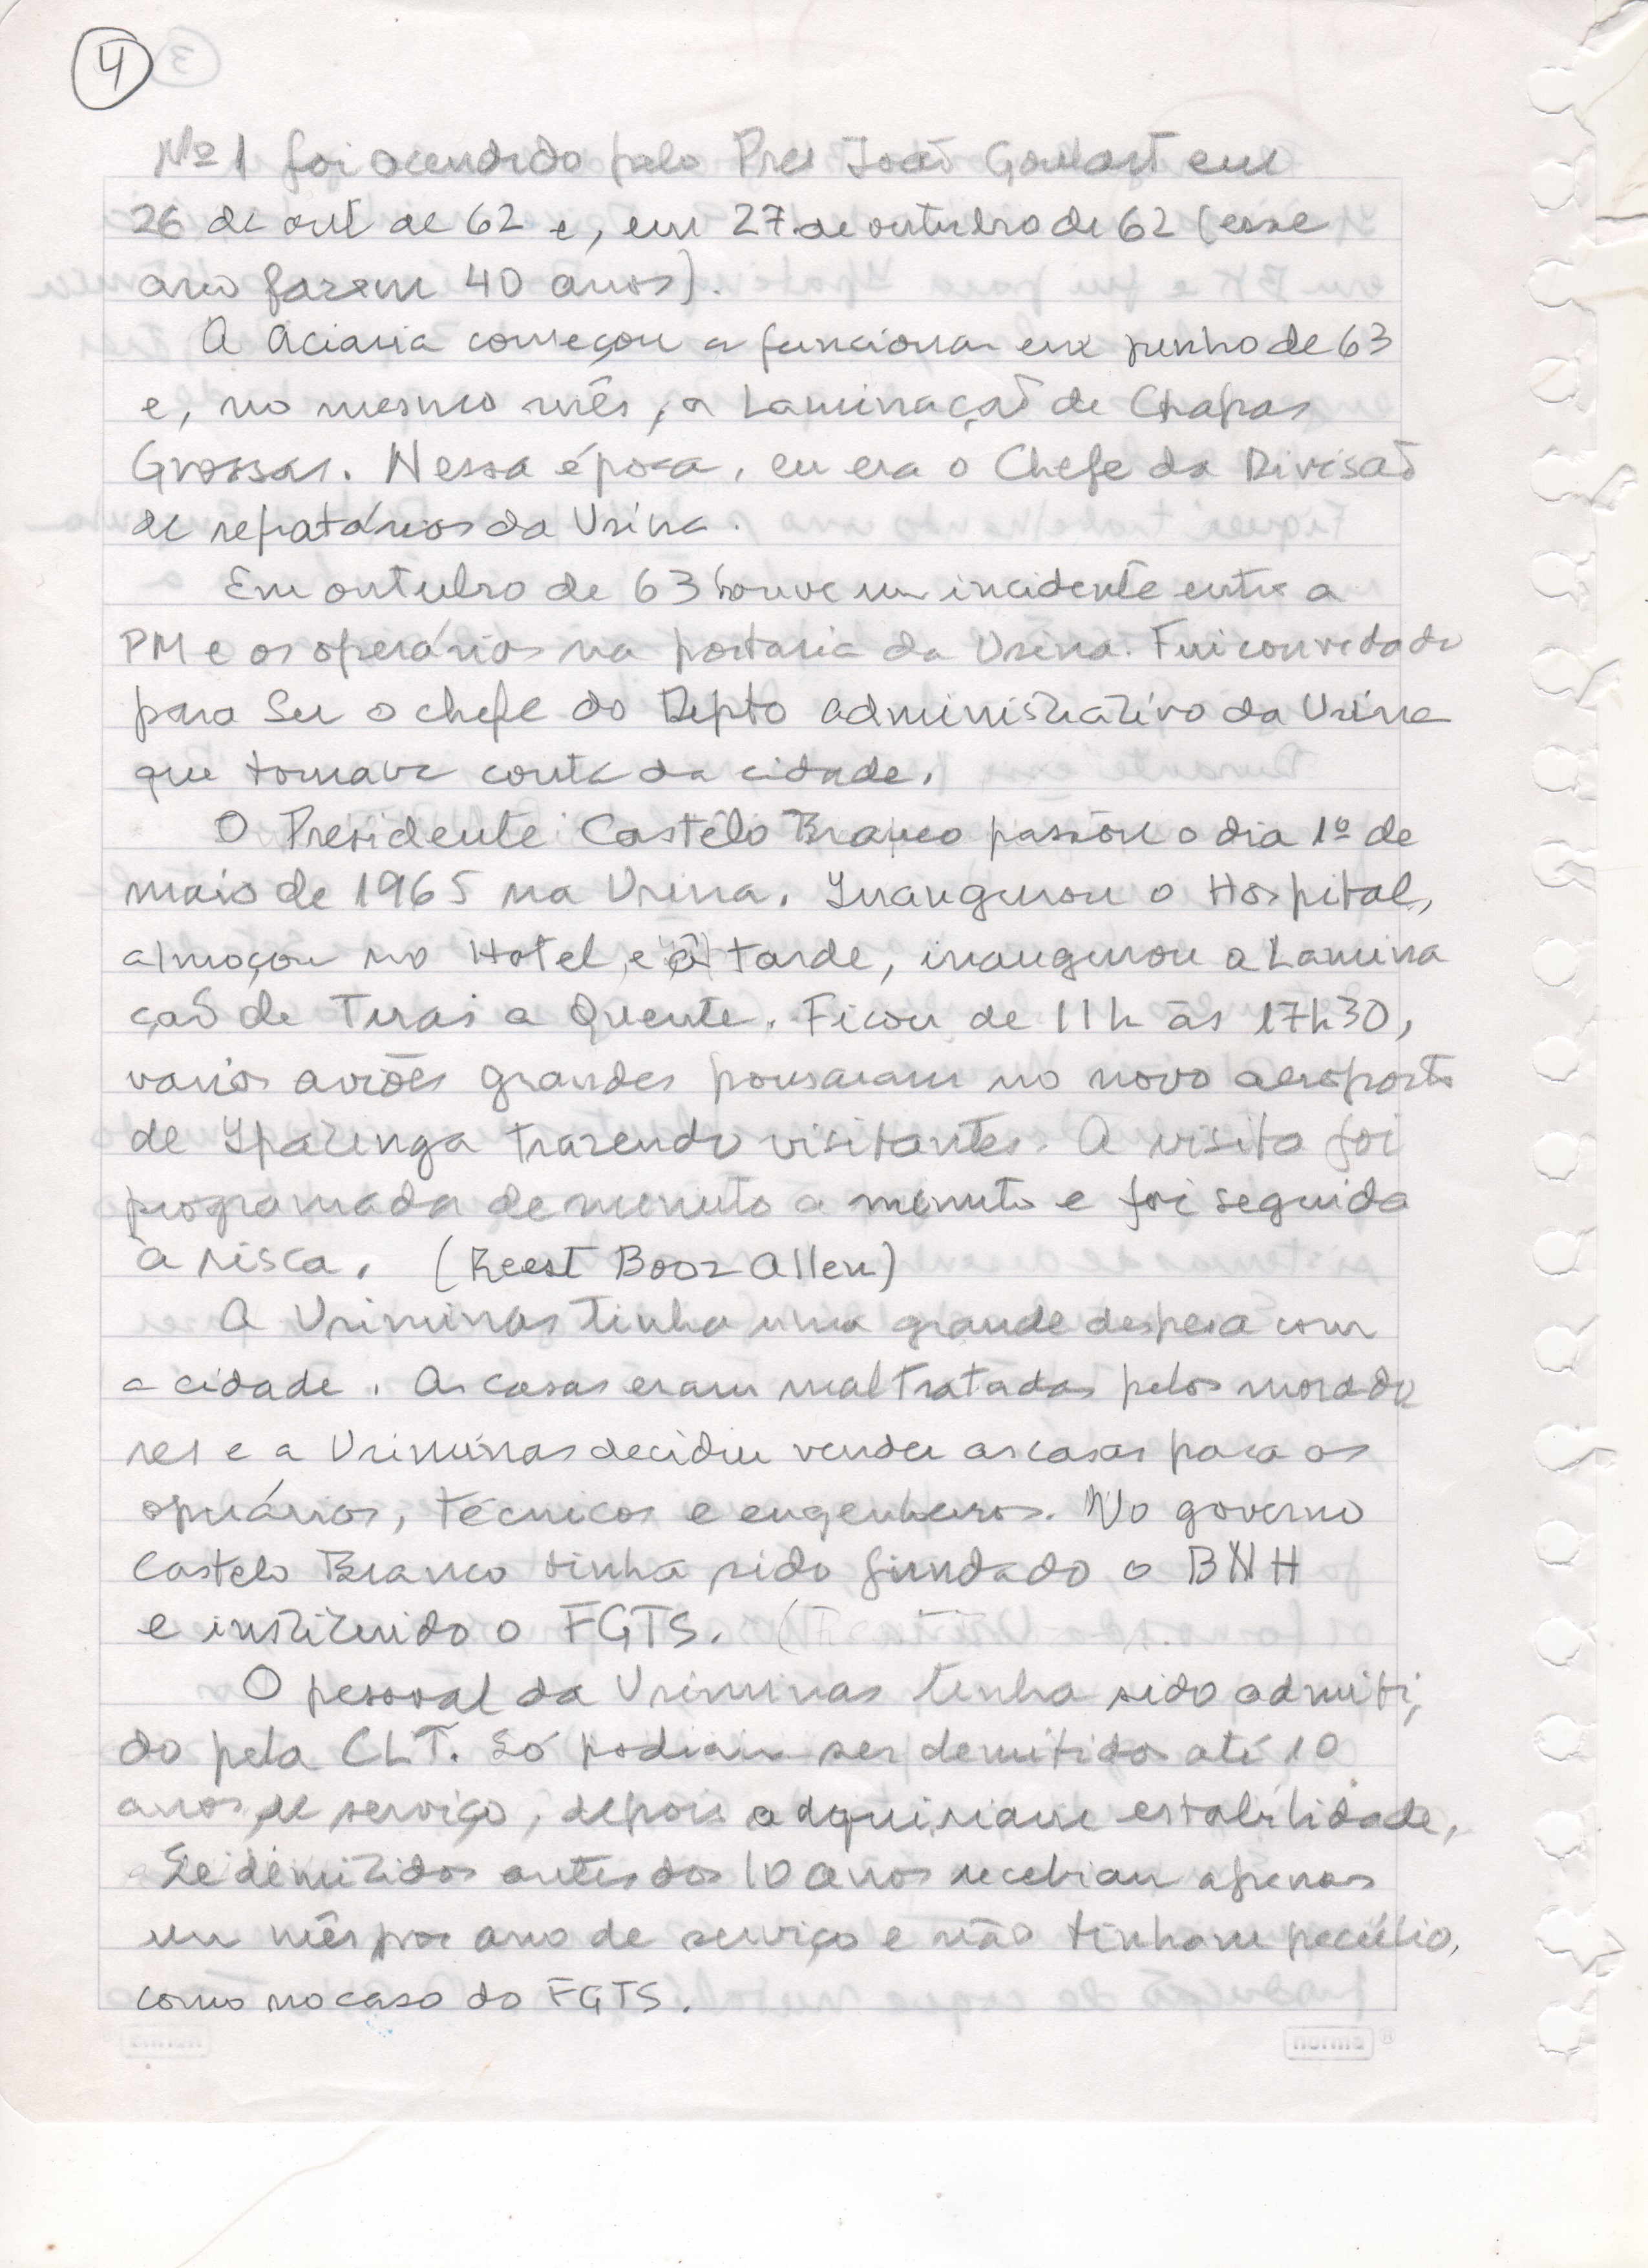 4
Nº 1 foi acendido pelo Pres João Goulart em
26 de out de 62 e, em 27 de outubro de 62 (esse
ano fazem 40 anos).
A Aciaria começou a funcionar em junho de 63
e, no mesmo mês, a Laminação de Chapas
Grossas. Nessa época, eu era o Chefe da Divisão
de refratários da Usina.
Em outubro de 63 houve um incidente entre a
PM e os operários na portaria da Usina. Fui convidado
para ser o chefe do Depto administrativo da Usina
que tomava conta da cidade.
O Presidente Castélo Branco passou o dia 1º de
maio de 1965 na Usina. Inaugurou o Hospital,
almoçou no Hotel, e à tarde, inaugurou a Lamina
ção de Tiras a Quente. Ficou de 11h às 17h30,
varios aviões grandes pousaram no novo aeroporto
de Ipatinga trazendo visitantes. A visita foi
programada de minuto a minuto e foi seguida
à risca. (Booz Allen)
A Usiminas tinha uma grande despesa com
a cidade. As casas eram maltratadas pelos morado
res e a Usiminas decidiu vender as casas para os
operários, técnicos e engenheiros. No governo
Castelo Branco tinha sido fundado o BNH
e instituido o FGTS.
O pessoal da Usiminas tinha sido admiti
do pela CLT. Só podiam ser demitidos até 10
anos de serviço, depois adquiriam estabilidade,
Se demitidos antes dos 10 anos recebiam apenas
um mês por ano de serviço e não tinham pecúlio,
como no caso do FGTS.
norma